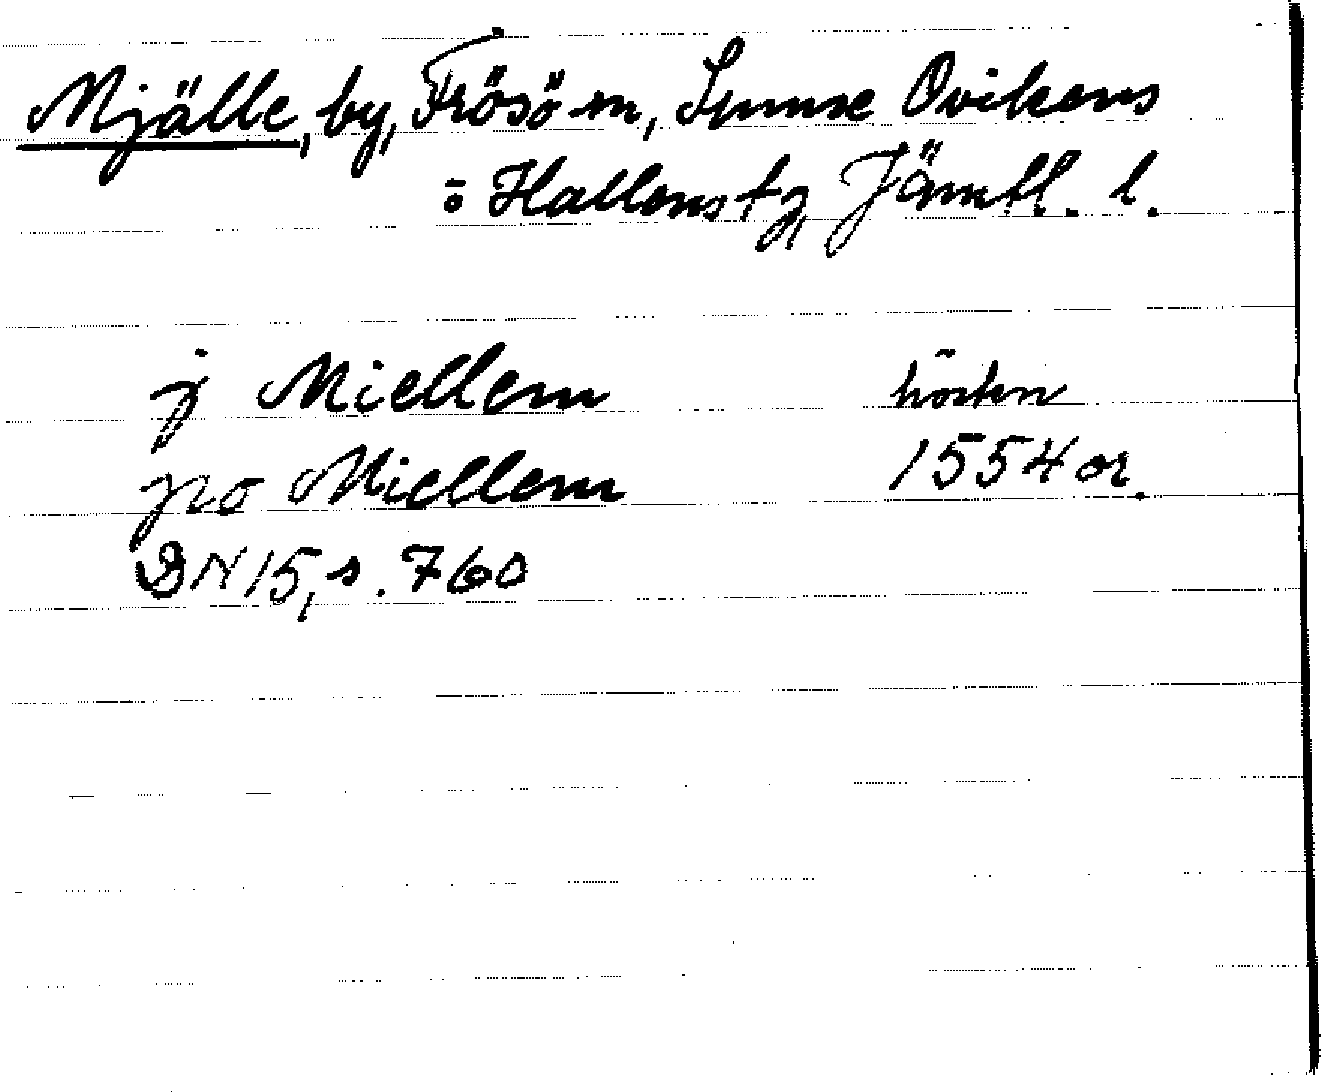 Mjälle, by, Frösö sn, Sunne Ovikens
o Hallens tg, Jämtl. l.
j Miellem hösten
po Miellem 1554 or.
DN 15, s. 760